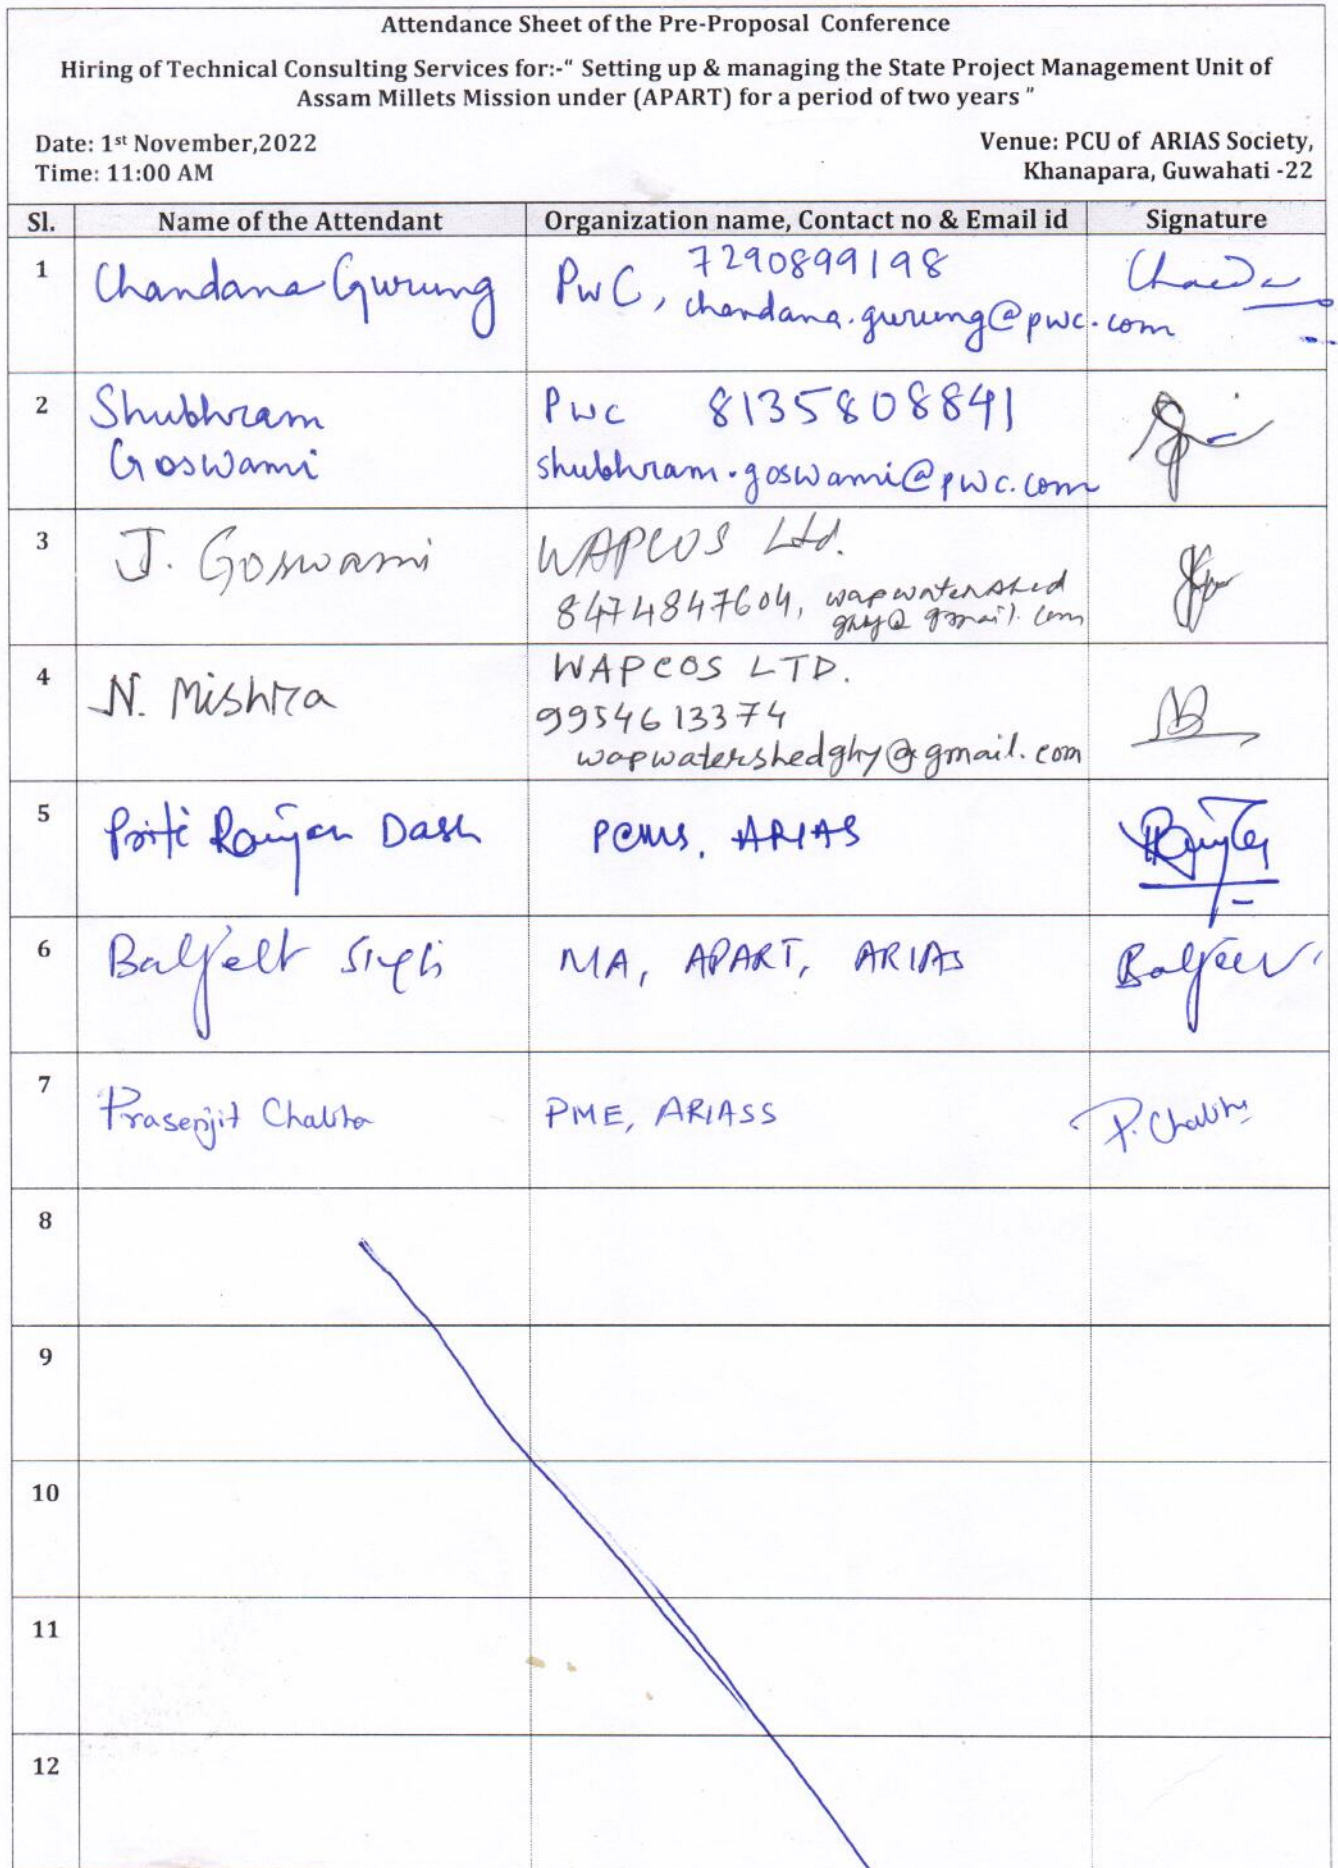 Attendance Sheet of the Pre-Proposal Conference
Hiring of Technical Consulting Services for:-" Setting up & managing the State Project Management Unit of
Assam Millets Mission under (APART) for a period of two years "
Date: 1st November,2022
Venue: PCU of ARIAS Society,
Time: 11:00 AM
Khanapara, Guwahati -22
Sl. Name of the Attendant Organization name, Contact no & Email id Signature
1 Chandana Gurung PwC, 7290899198
chandana.gurung@pwc.com
2 Shubhram
Goswami
Pwc 8135808841
shubhram.goswami@pwc.com
3 J. Goswami WAPCOS Ltd.
8474847604, wapwatershed
ghy@gmail.com
4 N. Mishra WAPCOS LTD.
9954613374
wapwatershedghy@gmail.com
5 Dash ARIAS
6 Baljeet Singh MA, APART, ARIAS Baljeet
7 Prasenjit PME, ARIASS
8
9
10
11
12